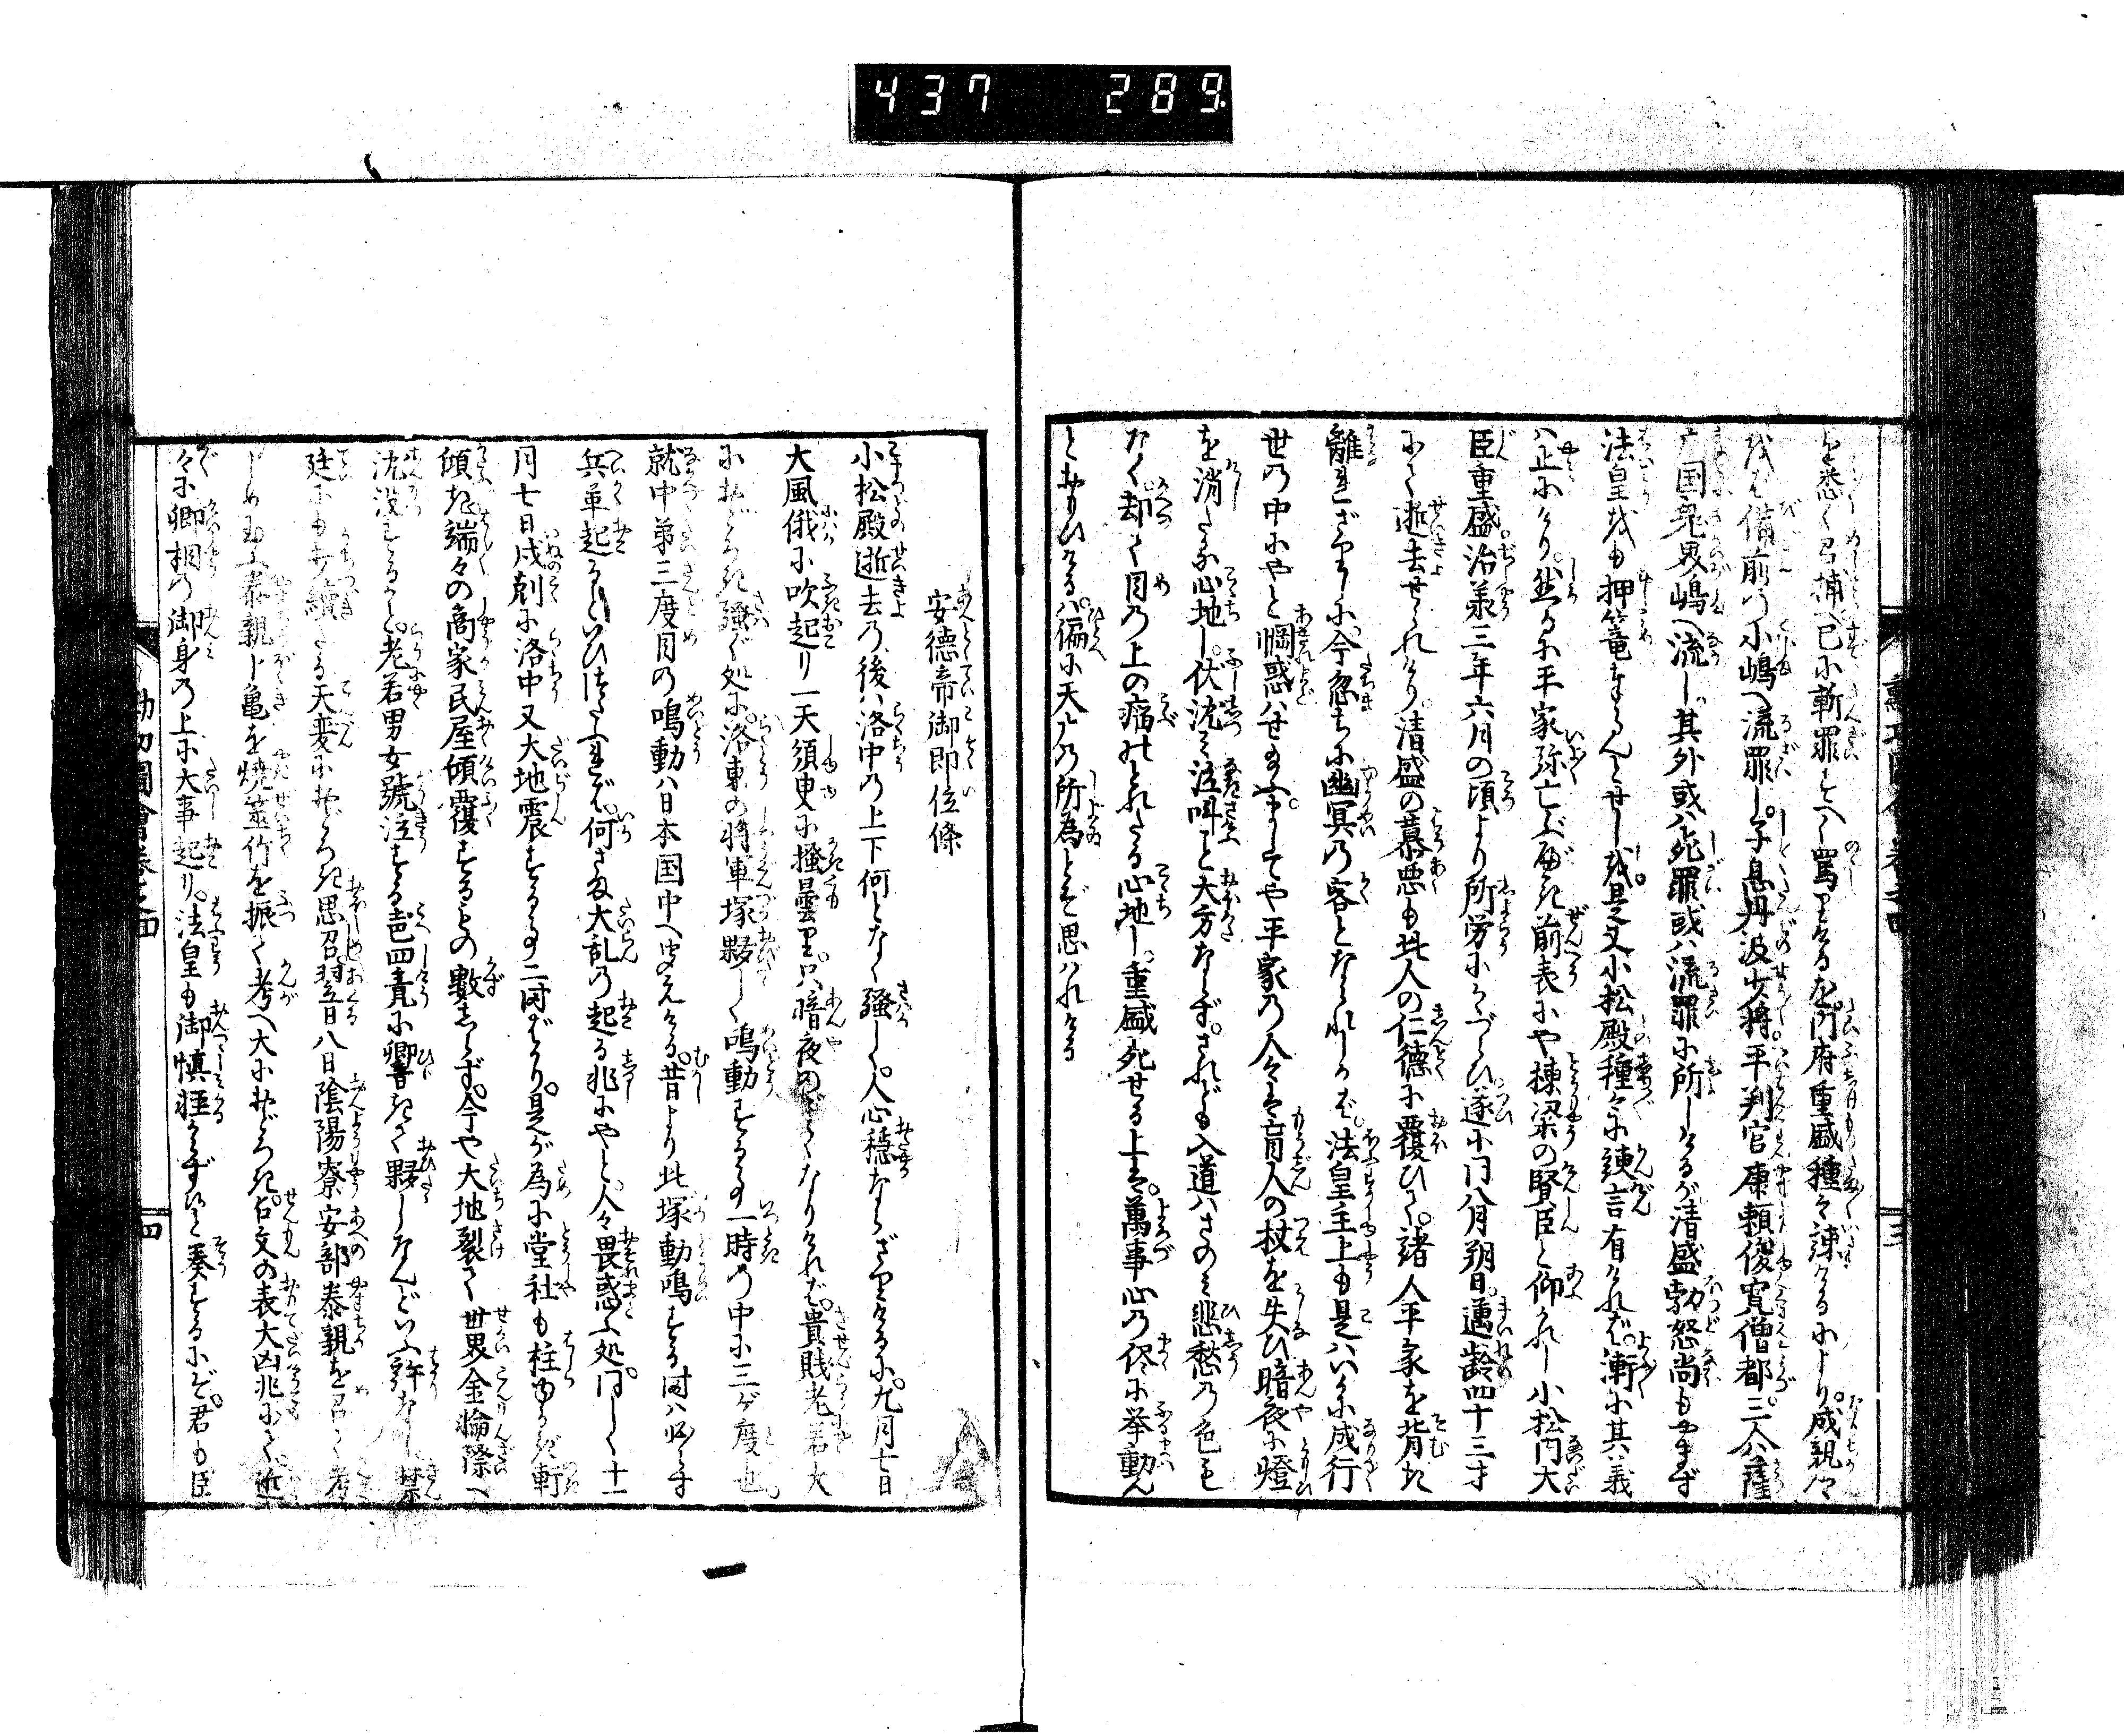 437 289
を悉く召捕へ已に斬罪とへ罵りけるを内府重盛種々諫けるにより成親卿
をば備前の小嶋へ流罪し子息丹波少将平判官康頼俊寛僧都三人ハ薩
广国鬼界嶋へ流し其外或ハ死罪或ハ流罪に所しけるが清盛勃怒尚もやまず
法皇をも押篭奉らんとせしを是又小松殿種々に諫言有けれバ漸に其ハ義
ハ止にけり然るに平家弥亡ぶべき前表にや棟梁の賢臣と仰れし小松内大
臣重盛治承三年六月の頃より所労にかゝづらひ遂に同八月朔日邁齢四十三才
にて逝去せられけり清盛の暴悪も此人の仁徳に覆ひて諸人平家を背き
離れざりしに今忽ちに幽冥の客となられしかバ法皇主上も是ハいかに成行
世の中にやと惘惑ハせ給ふましてや平家の人々ハ盲人の杖を失ひ暗夜に燈
を消たる心地し伏沈ミ泣叫こと大方ならずされども入道ハさのミ悲愁の色も
なく却て目の上の瘤のとれたる心地し重盛死せる上ハ萬事心の侭に挙動ん
とおもひける偏に天广の所為とぞ思ハれける
三
安徳帝御即位條
小松殿逝去の後ハ洛中の上下何となく騒しく人心穏ならざりけるに九月七日
大風俄に吹起り一天須臾に掻曇り只暗夜のごとくなりけれバ貴賎老若大
におどろき騒ぐ処に洛東の将軍塚夥しく鳴動する事一時の中に三ケ度也
就中第三度目の鳴動ハ日本国中へ聞えける昔より此塚動鳴する時ハ必らず
兵革起るといひ伝ふれバ何さま大乱の起る兆にやと人々畏惑ふ処同しく十一
月七日戌剋に洛中又大地震する事二時ばかり是が為に堂社も柱ゆるぎ軒
傾き端々の商家民屋傾覆するもの數しらず今や大地裂て世界金輪際へ
沈没するかと老若男女號泣する声四責に響きて夥しなんどいふ許なし禁
廷にも打續たる天変におどろき思召翌日八日陰陽寮安部泰親を召て考
しめ給ふ泰親ト亀を焼筮竹を振て考へ大におどろき占文の表大凶兆にて近
々に卿相の御身の上に大事起り法皇も御慎軽からずと奏するにぞ君も臣
勲功圖會巻之四
四